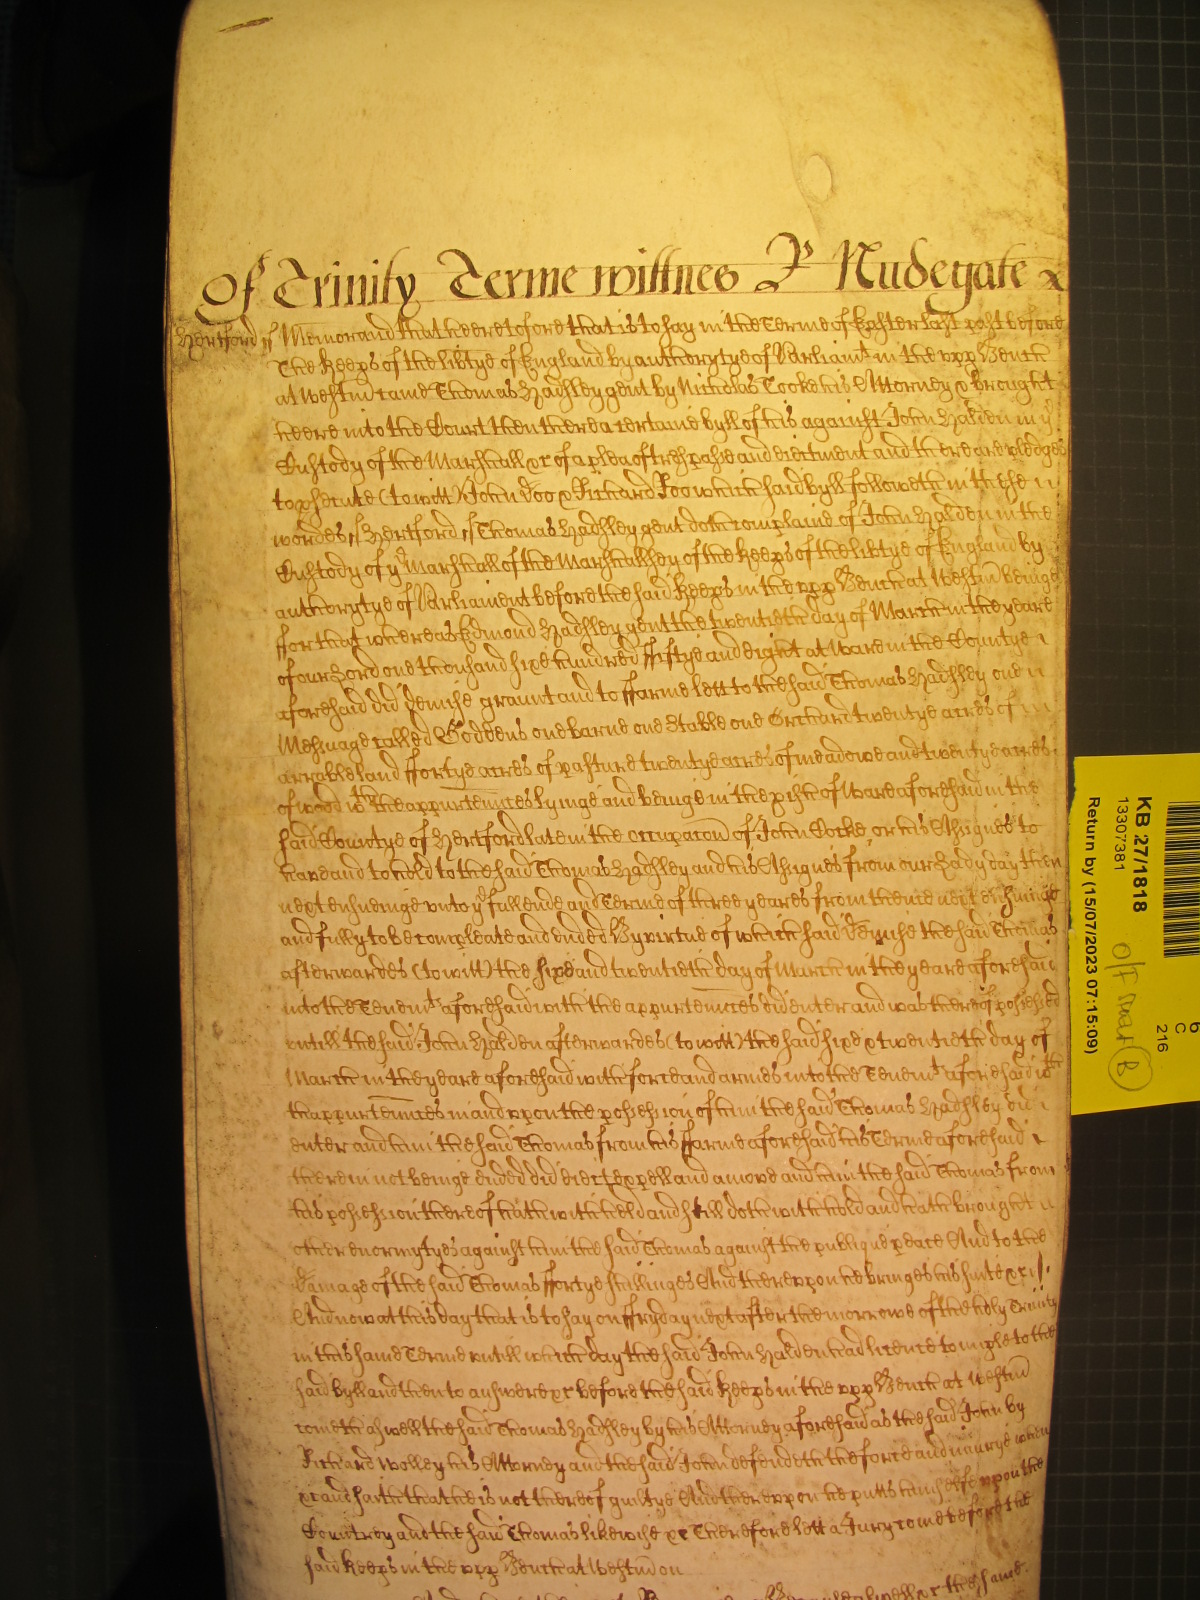 Of Trinity Terme wittnes P Nudegate
Hertford ss Memorand that heretofore that is to say in the Terme of Easter last past before
The Keeps of the libtye of England by authorytye of Parliamt in the upp Bench
at Westm came Thomas Hadsley gent by Nicholas Cooke his Attorney & brought
heere into the Court then there a certaine byll of his against John Halden in ye
Custody of the Marshall &c of a plea of trespasse and eiectment and there are pledges
to psecute (to witt) John Doo & Richard Roo which said byll followeth in these
wordes ss Hertford ss Thomas Hadsley gent doth complaine of John Halden in the
Custody of ye Marshall of the Marshallsey of the Keeps of the libtye of England by
authorytye of Parliament before the said Keeps in the upp Bench at Westm beinge
ffor that whereas Edmond Hadsley gent the twentieth day of March in the yeare
of our Lord one thousand sixe hundred ffiftye and eight at Ware in the Countye
aforesaid did demise graunt and to ffarme lett to the said Thomas Hadsley one
Messuage called Goddens one barne one Stable one Orchard twentye acres of
arrable land ffortye acres of pasture twentye acres of meadowe and twentye acres
of wood wth the appurtennces lyinge and beinge in the pish of Ware aforesaid in the
said Countye of Hertford late in the occupacon of John Cocke or his Assignes to
have and to hold to the said Thomas Hadsley and his Assignes from our Lady day then
next ensueinge unto ye full ende and Terme of three yeares from thence next ensuinge
and fully to be compleate and ended By virtue of which said Demise the said Thomas
afterwardes (to witt) the sixe and twentieth day of March in the yeare aforesaid
into the Tenemts aforesaid with the appurtennces did enter and was thereof possessed
untill the said John Halden afterwardes (to witt) the said sixe & twentieth day of
March in the yeare aforesaid with force and armes into the Tenemts aforesaid wth
thappurtennces in and uppon the possession of him the said Thomas Hadsley did
enter and him the said Thomas from his ffarme aforesaid his Terme aforesaid
therein not beinge ended did eiect expell and amove and him the said Thomas from
his possession thereof hath withheld and still doth withhold and hath brought
other enormytyes against him the said Thomas against the publique peace And to the
Damage of the said Thomas ffortye shillinges And thereuppon he bringes his suite &c
And now at this day that is to say on ffryday next after the morrowe of the holy Trinity
in this same Terme untill which day the said John Halden had licence to imple to the
said byll and then to answere &c before the said Keeps in the upp Bench at Westm
cometh aswell the said Thomas Hadsley by his Attorney aforesaid as the said John by
Richard Wolley his Attorney and the said John defendeth the force and iniurye when
&c and saith that he is not thereof guiltye And thereuppon he putts himselfe uppon the
Countrey and the said Thomas likewise &c Therefore lett a Jury come before the
said Keeps in the upp Bench at Westm on
KB 27/1818
13307381
Return by (15/07/2023 07:15:09)
6
C
216